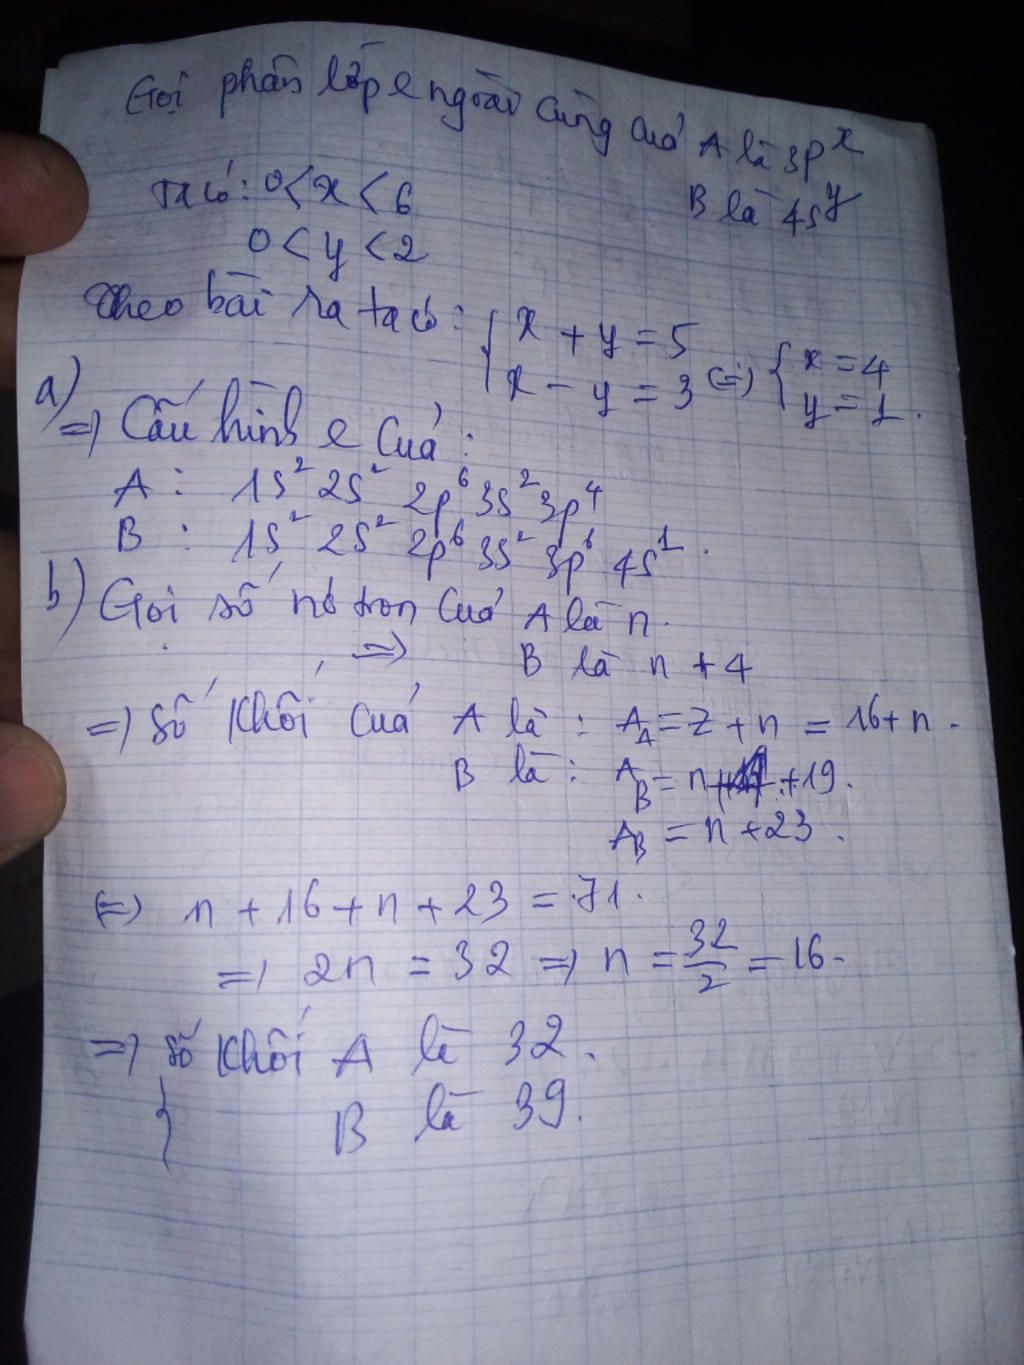 Gọi phân lớp e ngoài cùng của A là 3p^x
B là 4s^y
Ta có: 0 < x < 6
0 < y < 2
Theo bài ra ta có: { x + y = 5
x - y = 3 (=) { x = 4
y = 1.
a)
=) Cấu hình e của:
A : 1s² 2s² 2p⁶ 3s² 3p⁴
B : 1s² 2s² 2p⁶ 3s² 3p⁶ 4s¹.
b) Gọi số nơtron của A là n.
=> B là n + 4
=) Số khối của A là : A_A = Z + n = 16 + n.
B là : A_B = n + 19.
A_B = n + 23.
(=) n + 16 + n + 23 = 71.
=) 2n = 32 =) n = 32/2 = 16.
=) số khối A là 32.
{ B là 39.